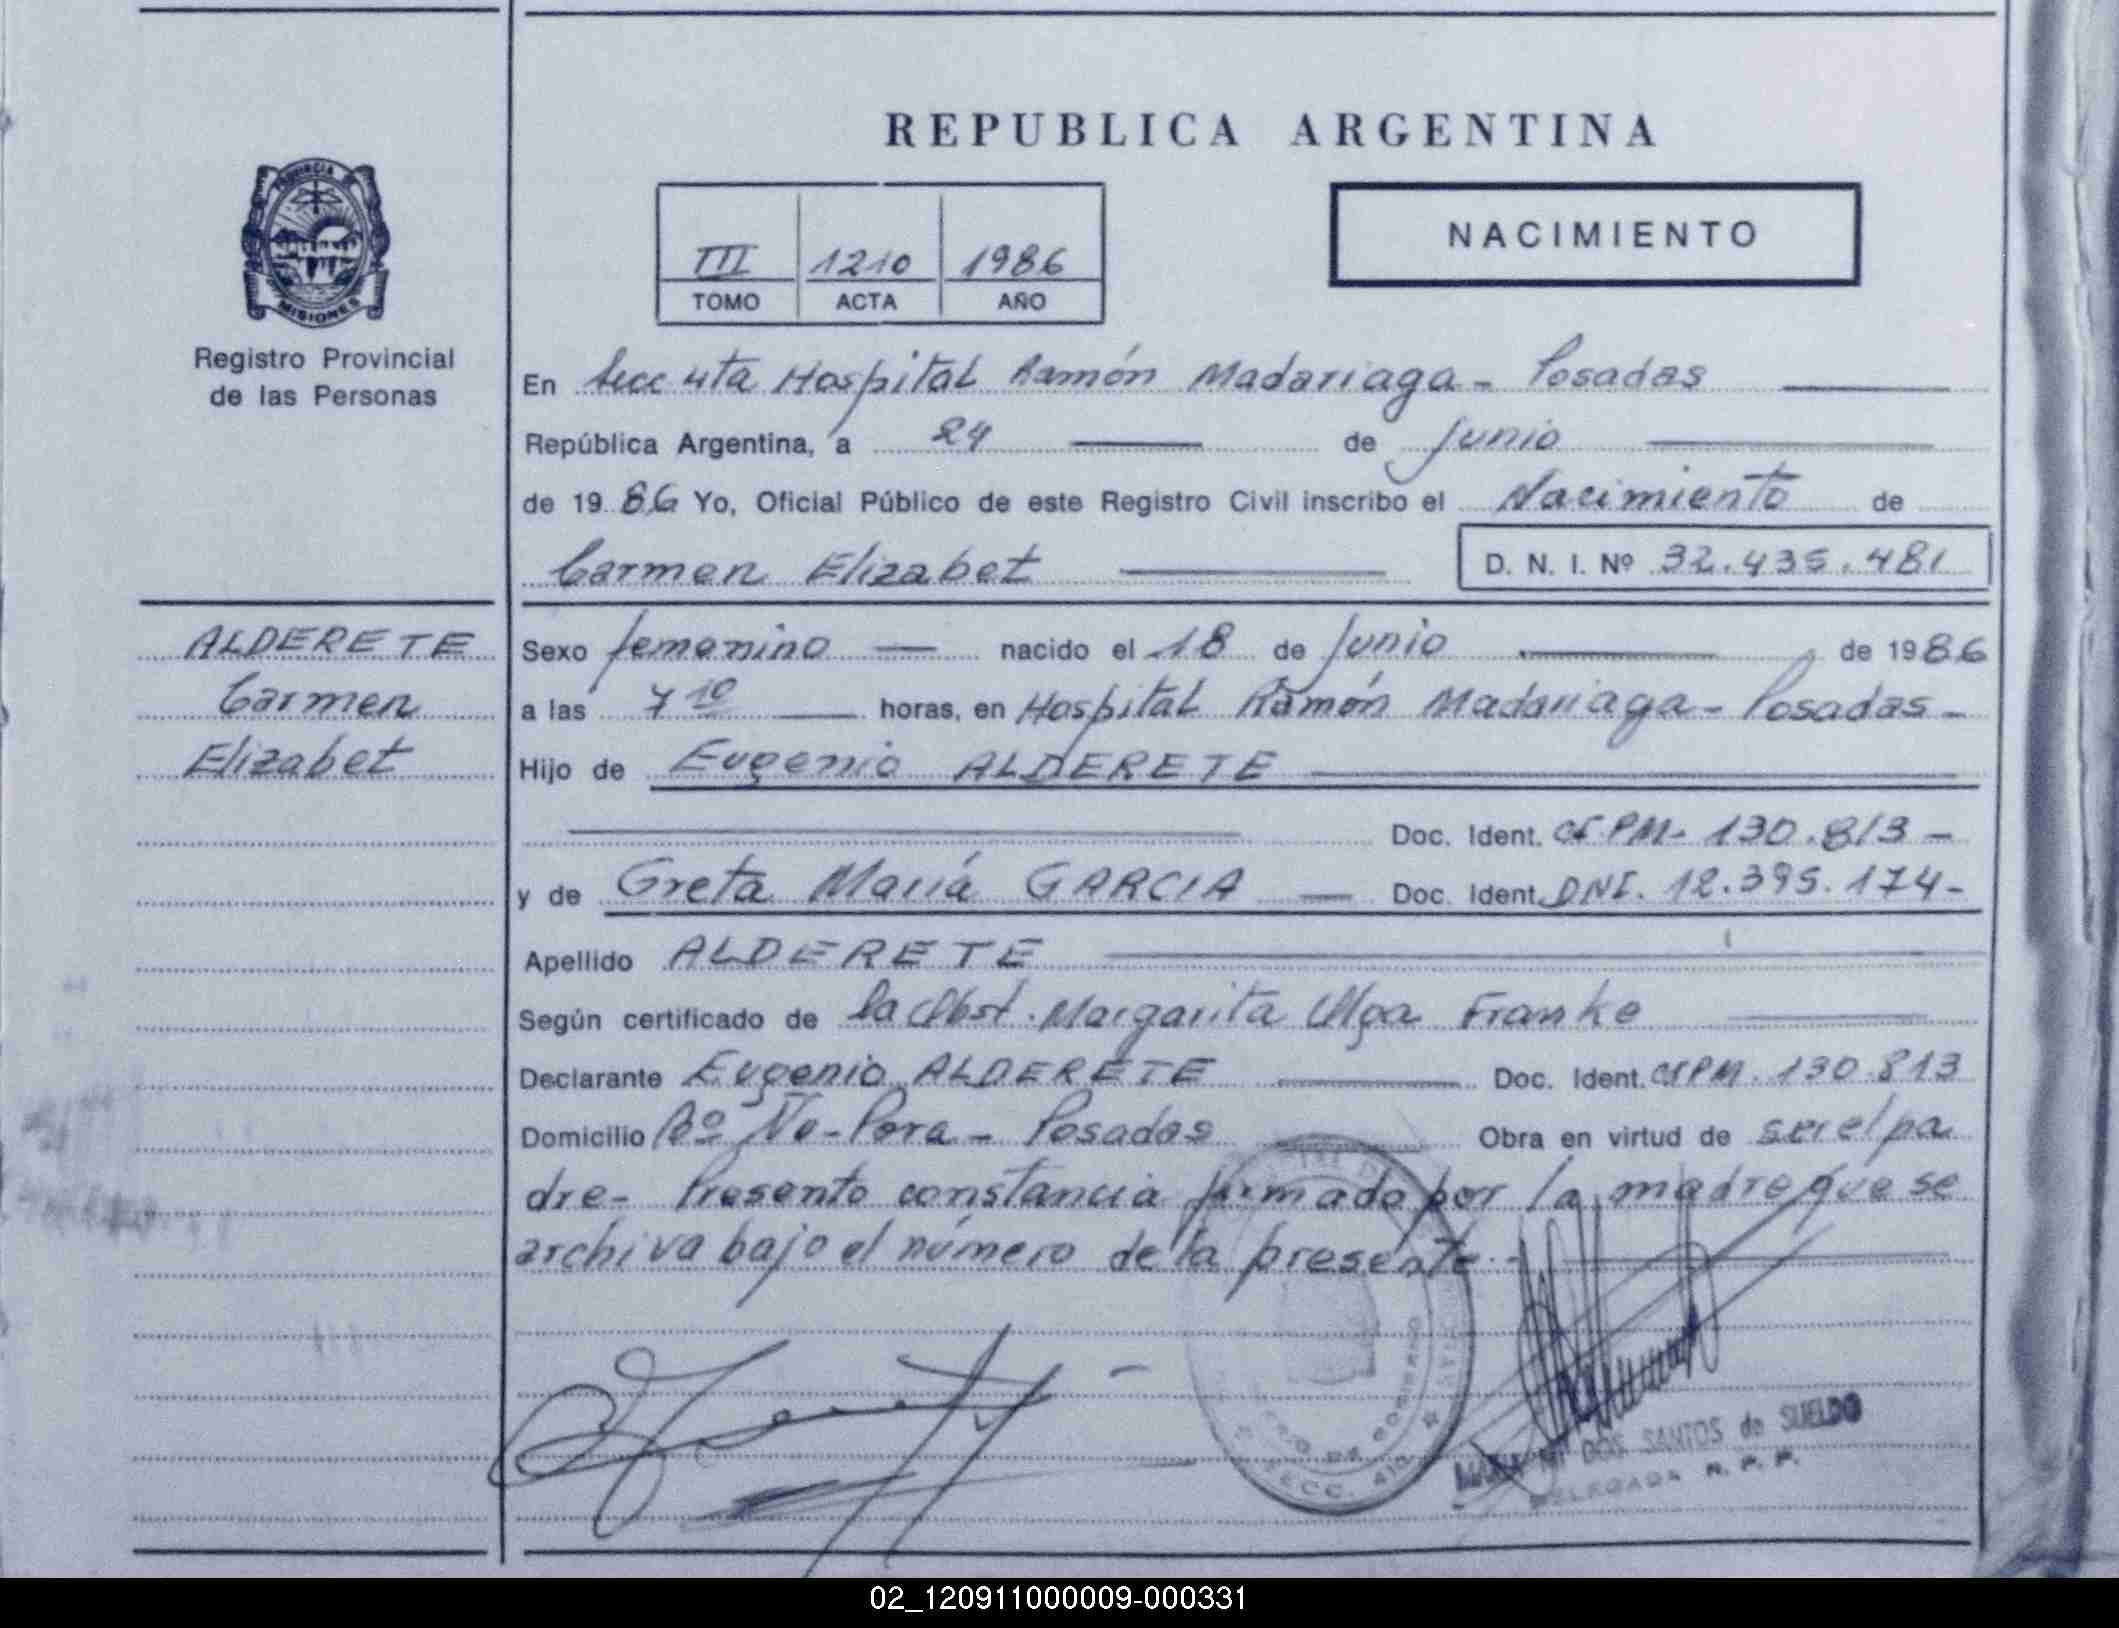 REPUBLICA ARGENTINA
NACIMIENTO
III 1210 1986
TOMO ACTA AÑO
PROVINCIA DE
MISIONES
Registro Provincial
de las Personas
En Secc 4ta Hospital Ramón Madariaga - Posadas
República Argentina, a 24 de Junio
de 1986 Yo, Oficial Público de este Registro Civil inscribo el Nacimiento de
Carmen Elizabet D. N. I. Nº 32.435.481
ALDERETE
Carmen
Elizabet
Sexo femenino nacido el 18 de Junio de 1986
a las 7 10 horas, en Hospital Ramón Madariaga - Posadas -
Hijo de Eugenio ALDERETE
Doc. Ident. CIPM - 130.813 -
y de Greta María GARCIA Doc. Ident. DNI. 12.395.174 -
Apellido ALDERETE
Según certificado de la Obst. Margarita Olga Franke
Declarante Eugenio ALDERETE Doc. Ident. CIPM. 130.813
Domicilio Bº Ñu-Pora - Posadas Obra en virtud de ser el pa
dre - Presento constancia firmada por la madre que se
archiva bajo el número de la presente. -
SECC. 4ta
DOS SANTOS de SUELDO
DELEGADA R. P. P.
02_120911000009-000331